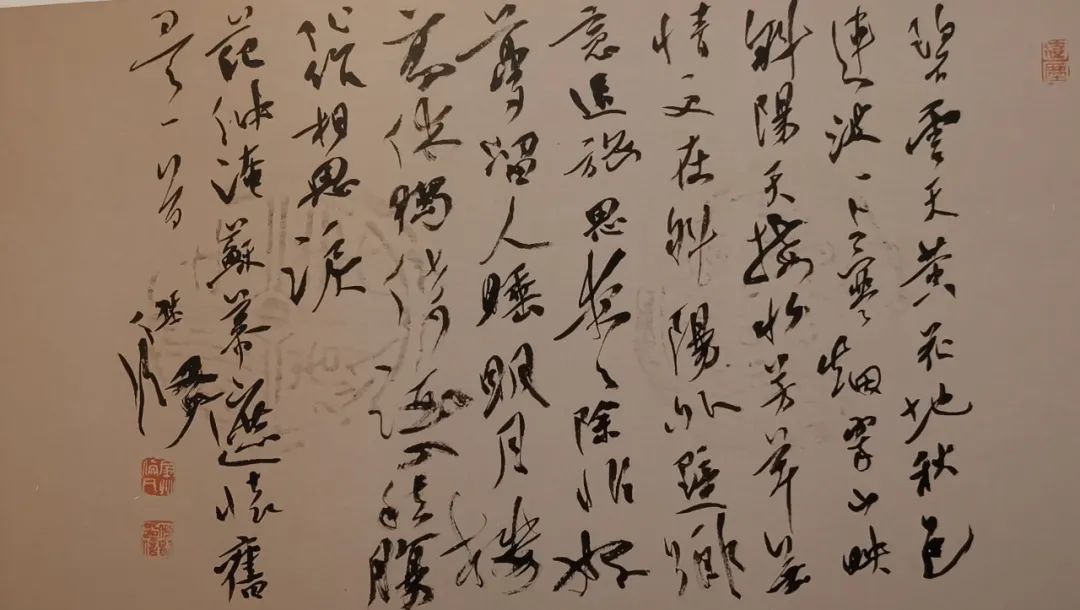 碧雲天黃花地秋色
連波々上寒烟翠山映
斜陽天接水芳草無
情更在斜陽外黯鄉
魂追旅思夜々除非好
夢留人睡明月樓
高休獨倚酒入愁腸
化作相思淚
范仲淹蘇幕遮懷舊
一首